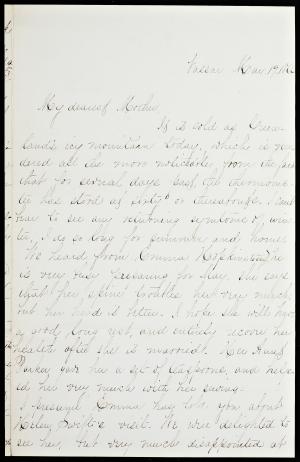 Vassar Mar. 19.
My dearest Mother,
It is cold as Green-
land's icy mountain today, which is ren-
dered all the more noticeable, from the fact
that for several days past, the thermome-
ter has stood at forty° or thereabouts. I can't
bear to see any returning symptoms of win-
ter, I do so long for summer and home.
We heard from Emma
is very busy preparing for May. She says
that her spine troubles her very much,
but her head is better. I hope she will
a good long rest, and entirely recover her
health after she is married. Her Aunt
Parker gave her a set of, and help-
ed her very much with her sewing.
I presume Emma has told you about
Helen Swift's visit. We were delighted to
see her, but very much disappointed at